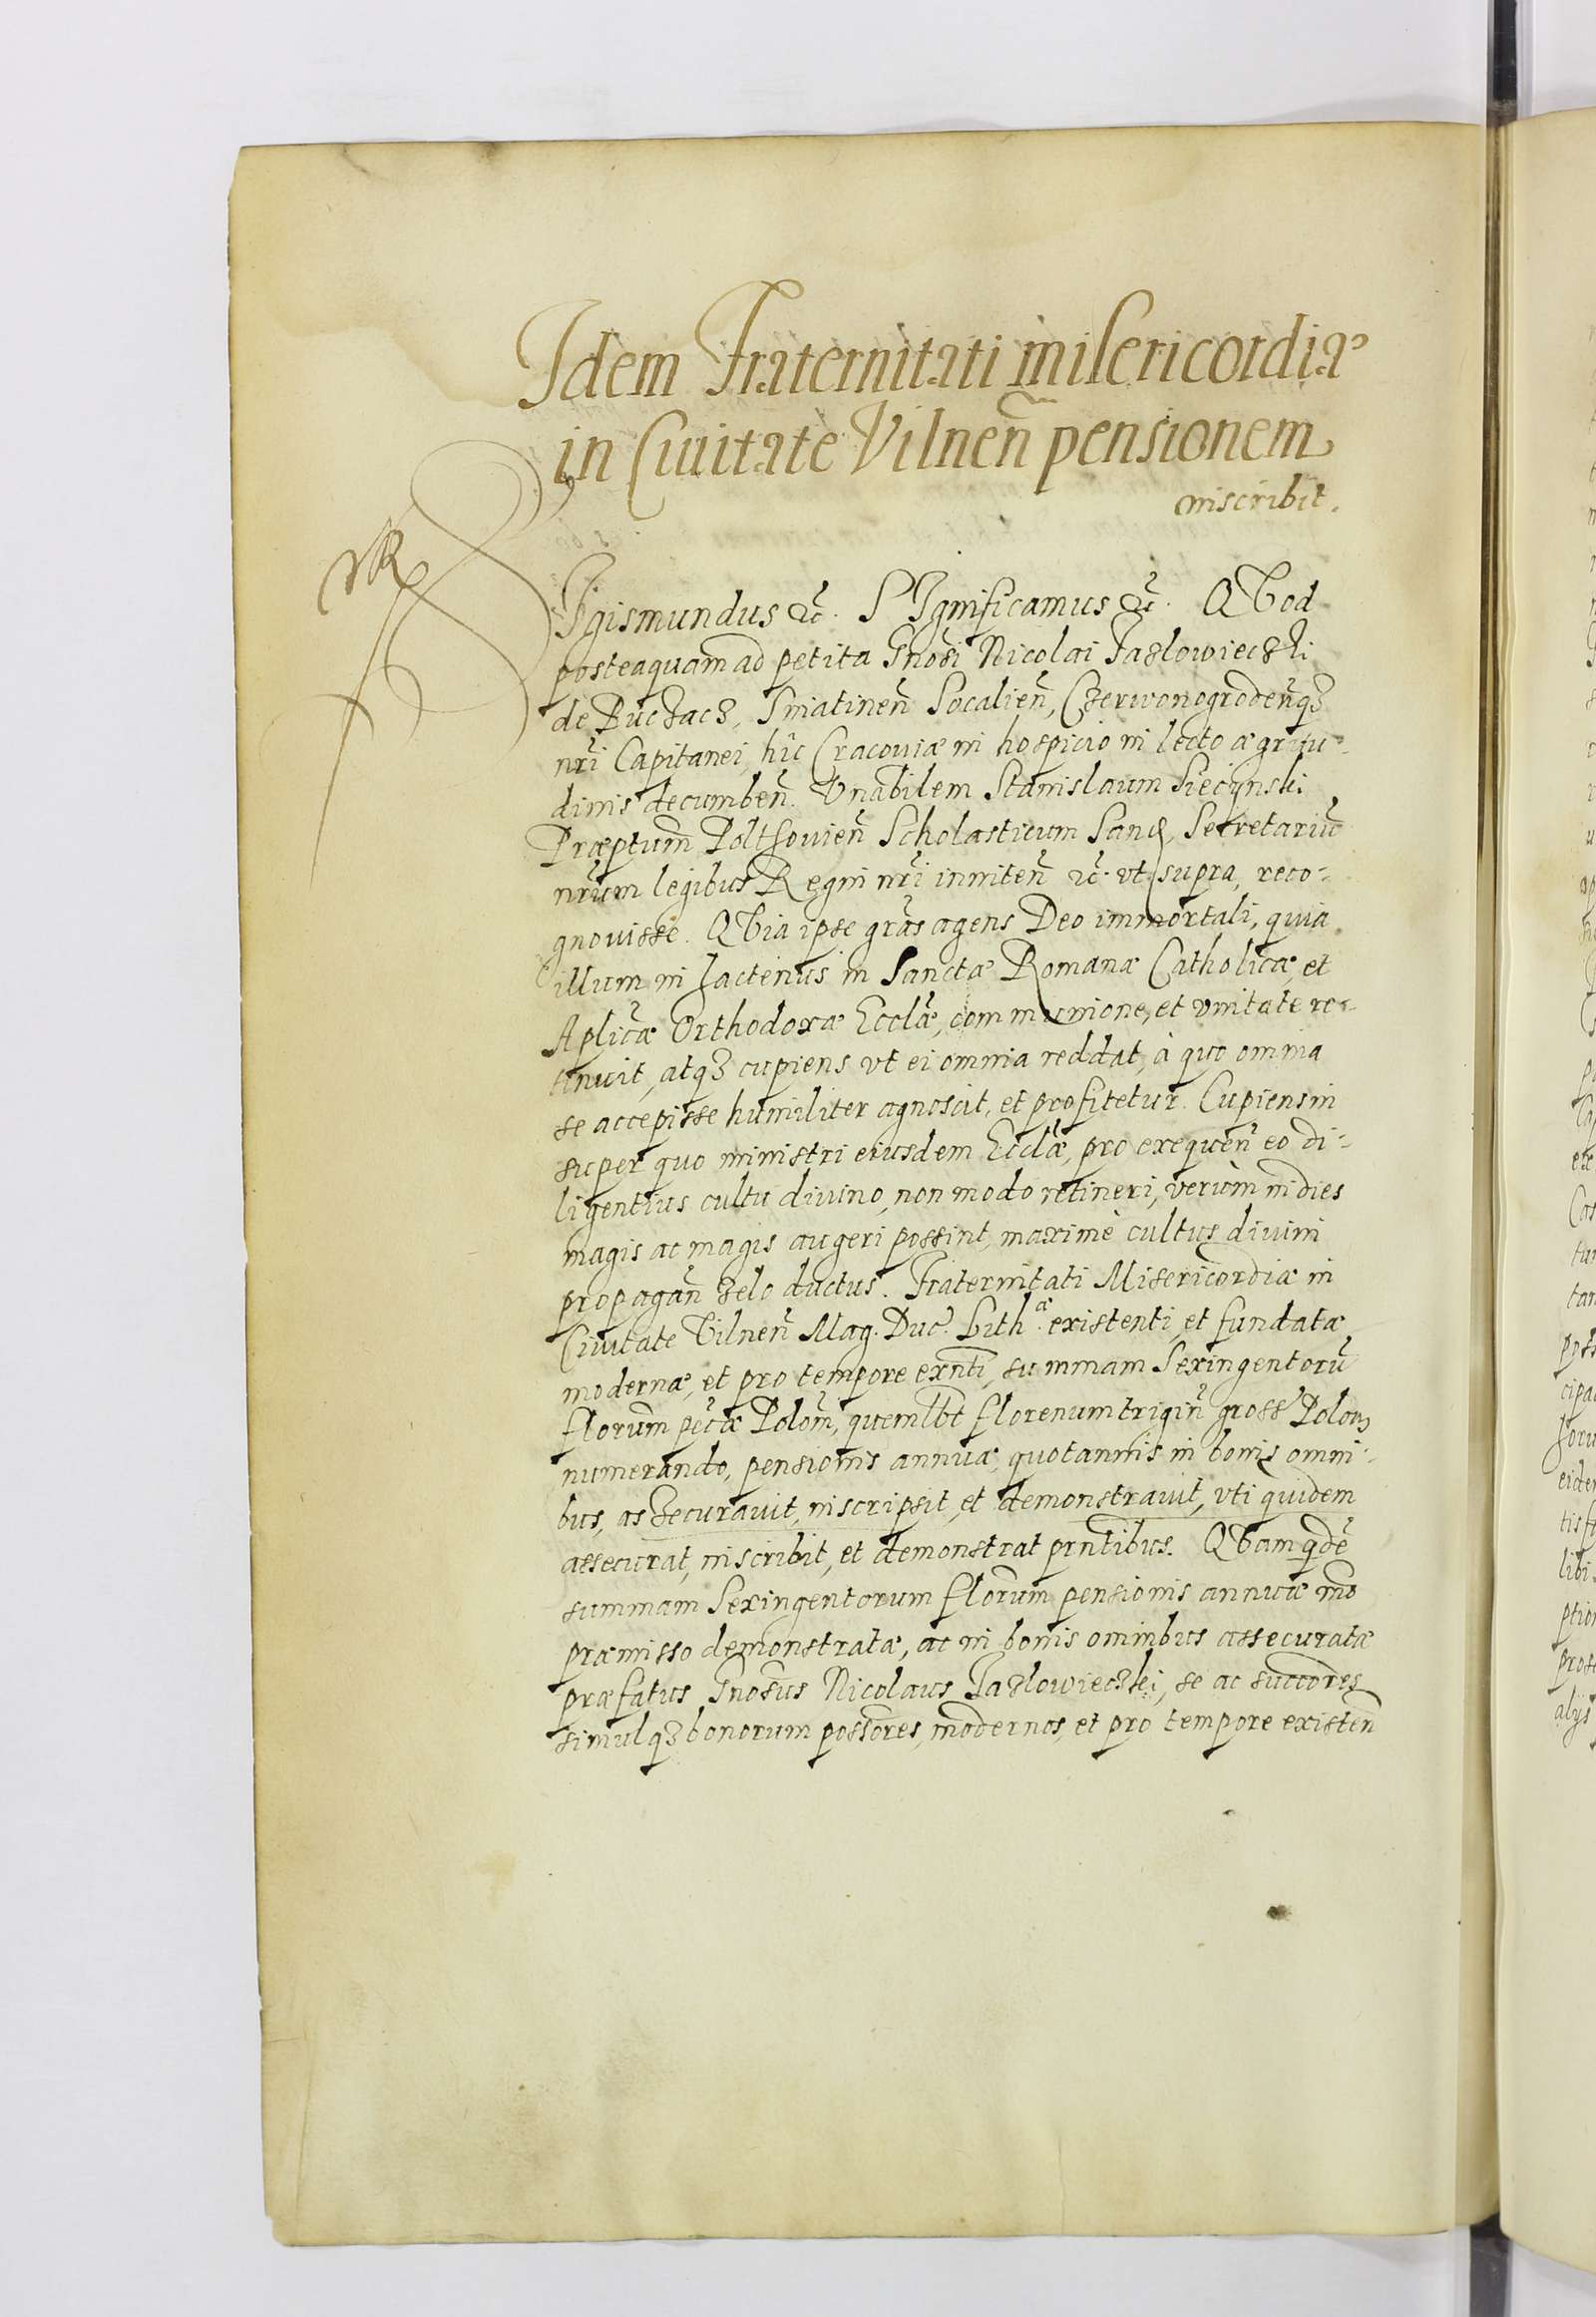 Idem Fraternitati misericordiæ
in Ciuitate Vilneñ pensionem
inscribit.
Sigismundus &c̃. SIgnificamus &c̃. QVod
posteaquam ad petita Gnosi Nicolai Jazlowieczki
de Buczacz, Sniatineñ Socalieñ, Czerwonogrodeñqz
nr̃i Capitanei, hîc Cracouiæ in hospicio in lecto ægritu-
dinis decumbeñ. Vnabilem Stanislaum Siecijnski
Præptum Poltsouieñ Scholasticum Sanoc, Secretariũ
nr̃um legibus Regni nr̃i inniteñ &c̃. vt supra, reco-
gnouisse. QVia ipse gr̃as agens Deo immortali, quia
illum in hactenus in Sanctæ Romanæ Catholicæ, et
Aplicæ Orthodoxæ Eccl̃æ, communione, et vnitate re-
tinuit, atqz cupiens vt ei omnia reddat, à quo omnia
se accepisse humiliter agnoscit, et profitetur. Cupiens in
super quo ministri eiusdem Eccl̃æ, pro exequeñ eo di-
ligentius cultu diuino, non modo retineri, verùm in dies
magis ac magis augeri possint, maximè cultus diuini
propagañ zelo ductus. Fraternitati Misericordiæ in
Ciuitate Vilneñ Mag. Duc. Lith.æ existenti, et fundatæ
modernæ, et pro tempore exñti, summam Sexingentorũ
florum pec̃æ Polom, quemlbt florenum trigiñ gross Polon
numerando, pensionis annuæ, quotannis in bonis omni-
bus, aszecurauit, inscripsit, et demonstrauit, vti quidem
assecurat, inscribit, et demonstrat prntibus. QVam qdẽ
summam Sexingentorum florum pensionis annuæ mo
præmisso demonstratæ, ac in bonis omnibus assecuratæ
præfatus Gnosus Nicolaus Jazlowieczki, se ac succores
simulqz bonorum possores, modernos, et pro tempore existeñ